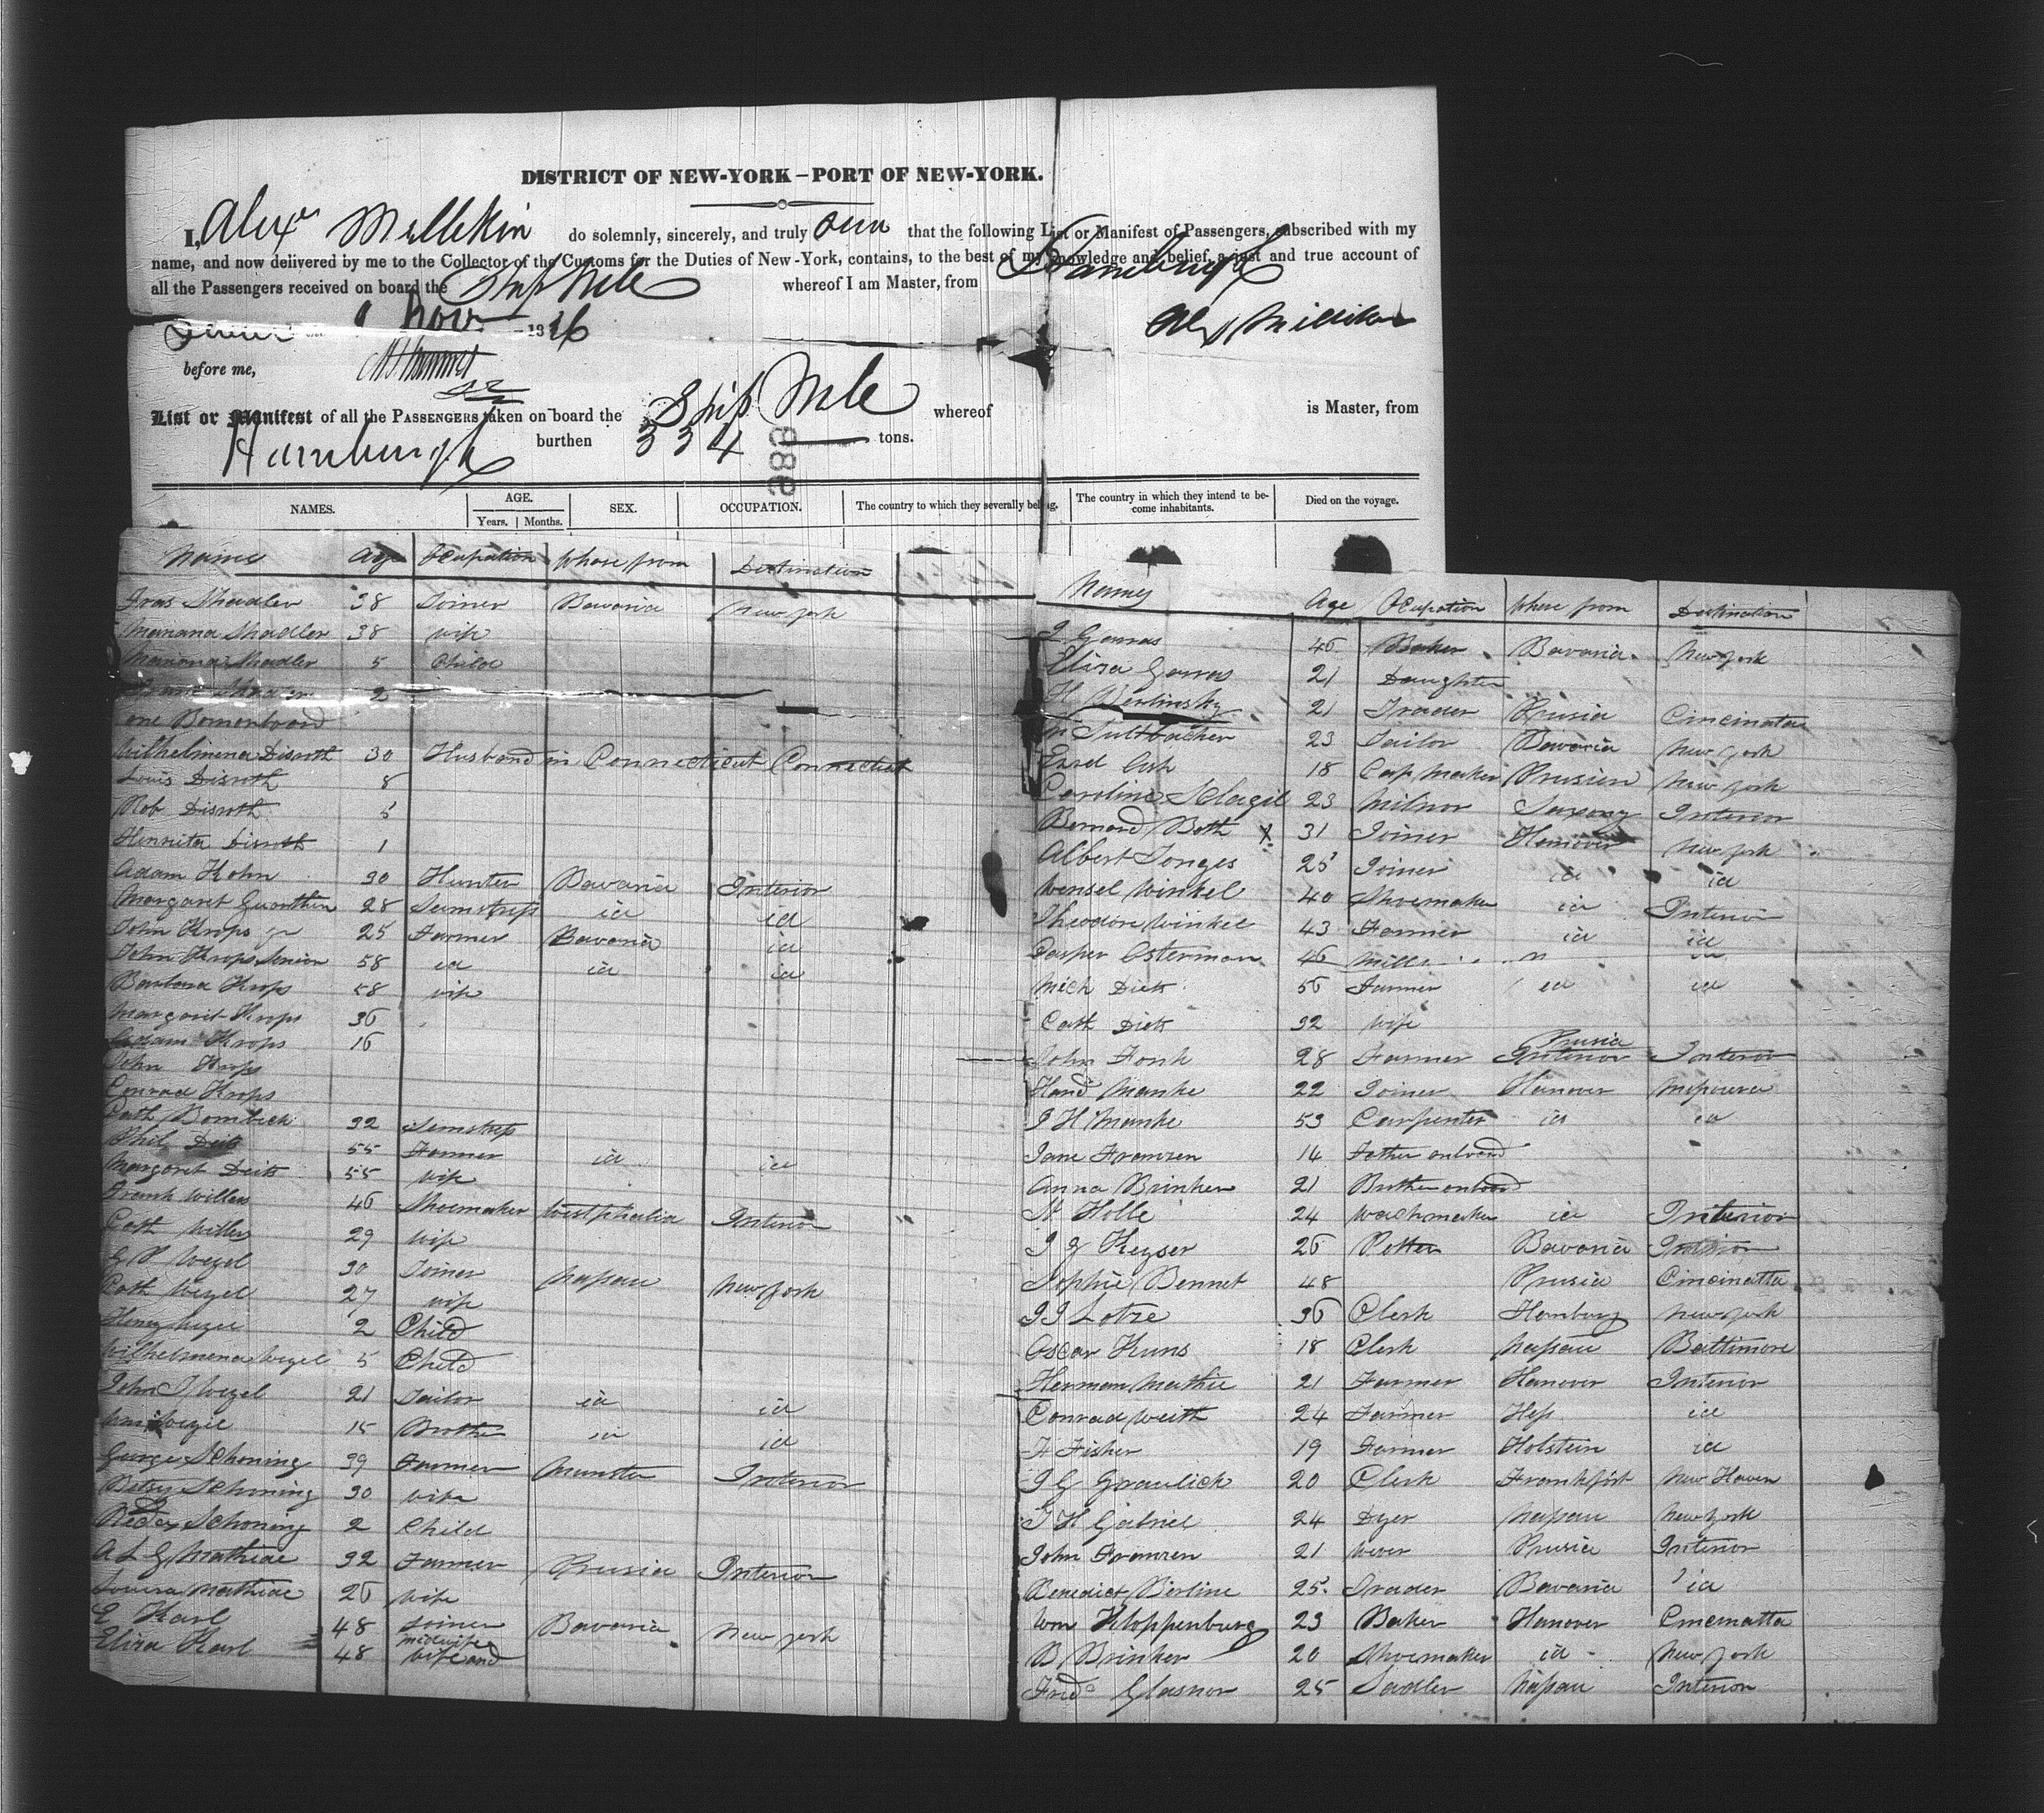 DISTRICT OF NEW-YORK – PORT OF NEW-YORK.
I, Alexr Millikin do solemnly, sincerely, and truly swear that the following List or Manifest of Passengers, subscribed with my
name, and now delivered by me to the Collector of the Customs for the Duties of New-York, contains, to the best of my knowledge and belief, a just and true account of
all the Passengers received on board the Ship Nile whereof I am Master, from Hamburgh
Nov 6
Alex Millikin
before me,
List or Manifest of all the PASSENGERS taken on board the Ship Nile whereof is Master, from
Hamburgh burthen 334 tons.
889
NAMES. AGE. Years. Months. SEX. OCCUPATION. The country to which they severally belong. The country in which they intend to become inhabitants. Died on the voyage.
Names Age Ocupation Whare from Destination
Shadler 38 Joiner Bavaria New york
Mariana Shadler 38 wife
Mariana Shadler 5 Child
2
one Born onboard
Wilhelmena Disroth 30 Husband in Connecticut Connecticut
Louis Disroth 8
Rob Disroth 5
Henrieta Disroth 1
Adam Kohn 30 Hunter Bavaria Interior
Margaret 28 Seamstress id id
John Krops jr 25 Farmer Bavaria id
John Krops Senior 58 id id id
Barbara Krops 58 wife
Margaret Krops 36
Adam Krops 16
John Krops
Conrad Krops
Cath Bombick 32 Semstress
Phil Deits 55 Farmer id id
Margaret Deits 55 wife
Frank Willers 46 Shoemaker Westphalia Interior
Cath Willers 29 wife
Wezel 30 Joiner Nassau New york
Cath Wezel 27 wife
Henry Wezel 2 Child
Wilhelmena Wezel 5 Child
John J Wezel 21 Tailor id id
Wezel 15 Brother id id
George Schoning 39 Farmer Munster Interior
Betsy Schoning 30 wife
Schoning 2 Child
A L G Mathiae 32 Farmer Prusia Interior
Louisa Mathiae 26 wife
E Karl 48 Joiner Bavaria New york
Eliza Karl 48 midwife wife and
Names Age Ocupation Where from Destination
J Garras 46 Baker Bavaria New york
Eliza Garras 21 Daughter
H Berlinsky 21 Trader Prusia Cincinatta
Sultbacher 23 Tailor Bavaria New york
18 Cap Maker Prusien New york
Caroline Schlagil 23 Milnor Saxony Interior
Bernard Both X 31 Joiner Hanover New york
Albert Tonges 25 Joiner id id
Wensel Winkel 40 Shoemaker id Interior
Theodore Winkel 43 Farmer id id
Casper Osterman 46 id
Mich Diets 56 Farmer id id
Cath Diets 32 wife
John Fonk 28 Farmer Prusia Interior Interior
Hand Manke 22 Joiner Hanover Missoura
J H Manke 53 Carpenter id id
Jane Franzen 14 Father onboard
Anna Brinker 21 Brother onboard
H Holle 24 Wachmaker id Interior
J G Keyser 26 Potter Bavaria Interior
Sophie Bennet 48 Prusia Cincinatta
J J Lotze 36 Clerk Hamburg New york
Oscar Kuns 18 Clerk Nassau Baltimore
Herman Mathie 21 Farmer Hanover Interior
Conrad Weith 24 Farmer Hess id
H Fisher 19 Farmer Holstein id
J G Graulich 20 Clerk Frankfort New Haven
J H Gabriel 24 Dyer Nassau New york
John Franzen 21 Wever Prusia Interior
Benedict Berline 25 Trader Bavaria id
Wm Kloppenburg 23 Baker Hanover Cincinatta
B Brinker 20 Shoemaker id New york
Fried Glasnor 25 Sadler Nassau Interior